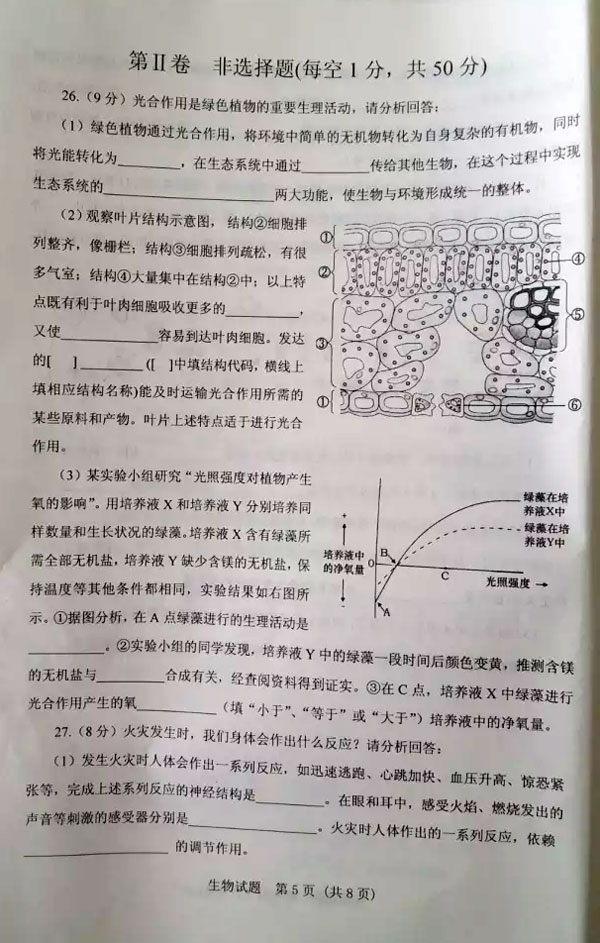 第Ⅱ卷 非选择题(每空1分，共50分)
26.（9分）光合作用是绿色植物的重要生理活动，请分析回答：
（1）绿色植物通过光合作用，将环境中简单的无机物转化为自身复杂的有机物，同时
将光能转化为________，在生态系统中通过________传给其他生物，在这个过程中实现
生态系统的________________两大功能，使生物与环境形成统一的整体。
（2）观察叶片结构示意图， 结构②细胞排
列整齐，像栅栏；结构③细胞排列疏松，有很
多气室；结构④大量集中在结构②中；以上特
点既有利于叶肉细胞吸收更多的________，
又使__________容易到达叶肉细胞。发达
的[ ]________([ ]中填结构代码，横线上
填相应结构名称)能及时运输光合作用所需的
某些原料和产物。叶片上述特点适于进行光合
作用。
①
②
③
①
④
⑤
⑥
（3）某实验小组研究“光照强度对植物产生
氧的影响”。用培养液X和培养液Y分别培养同
样数量和生长状况的绿藻。培养液X含有绿藻所
需全部无机盐，培养液Y缺少含镁的无机盐，保
持温度等其他条件都相同，实验结果如右图所
示。①据图分析，在A点绿藻进行的生理活动是
________。②实验小组的同学发现，培养液Y中的绿藻一段时间后颜色变黄，推测含镁
的无机盐与________合成有关，经查阅资料得到证实。③在C点，培养液X中绿藻进行
光合作用产生的氧________（填“小于”、“等于”或“大于”）培养液中的净氧量。
+
培养液中
的净氧量
-
0
B
A
C
光照强度
绿藻在培
养液X中
绿藻在培
养液Y中
27.（8分）火灾发生时，我们身体会作出什么反应？请分析回答：
（1）发生火灾时人体会作出一系列反应，如迅速逃跑、心跳加快、血压升高、惊恐紧
张等，完成上述系列反应的神经结构是________。在眼和耳中，感受火焰、燃烧发出的
声音等刺激的感受器分别是______________。火灾时人体作出的一系列反应，依赖
______________的调节作用。
生物试题 第5页（共8页）